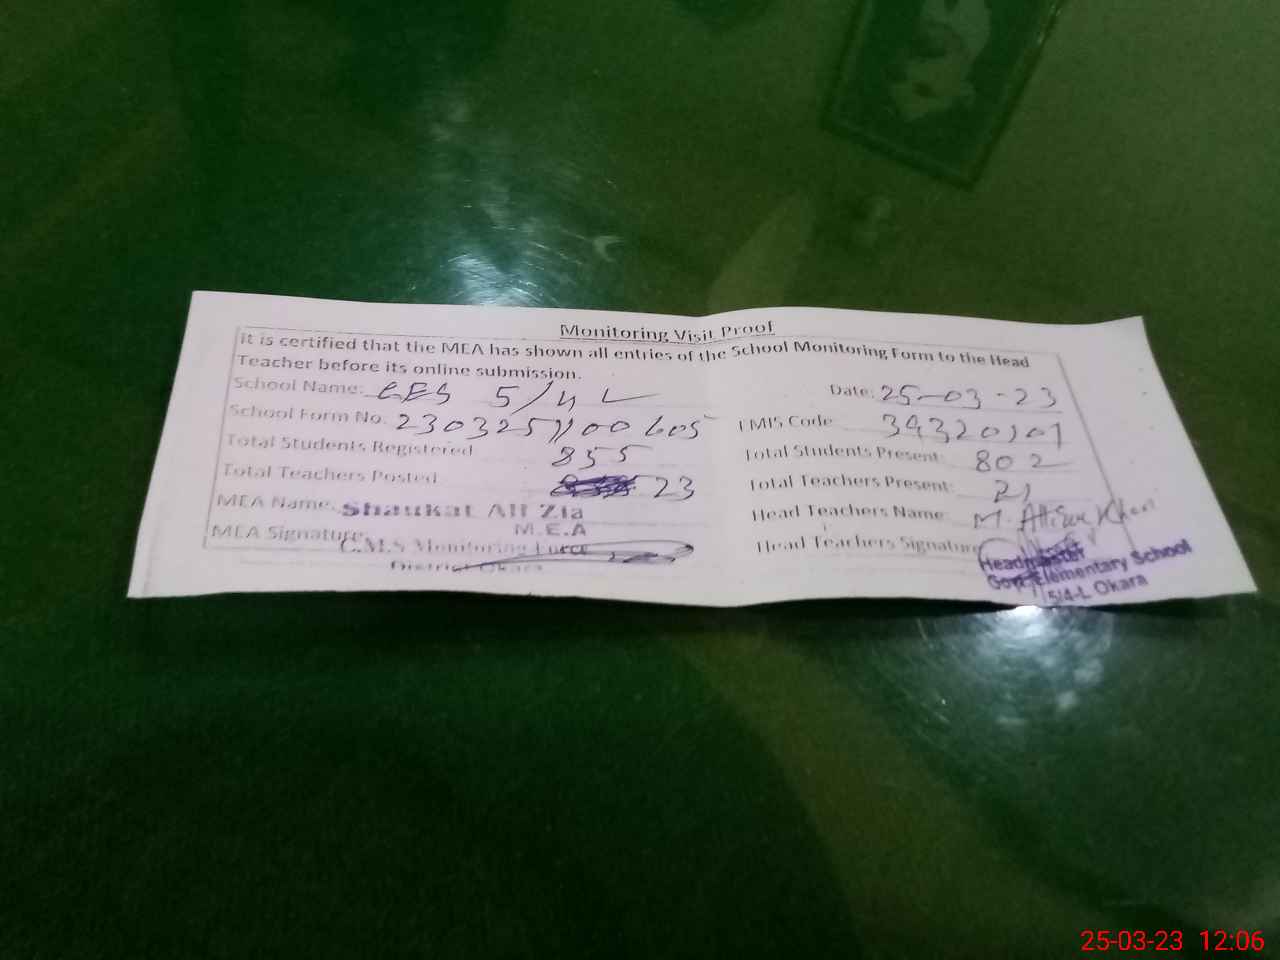 Monitoring Visit Proof
It is certified that the MEA has shown all entries of the School Monitoring Form to the Head
Teacher before its online submission.
School Name: GES 5/4 L Date: 25-03-23
School Form No. 2303251100605 EMIS Code 39320101
Total Students Registered 855 Total Students Present: 802
Total Teachers Posted 23 Total Teachers Present: 21
MEA Name: Shaukat Ali Zia Head Teachers Name M. Khan
M.E.A
MEA Signature: C.M.S Monitoring Force Head Teachers Signature
District Okara
Headmaster
Govt. Elementary School
5/4-L Okara
25-03-23 12:06